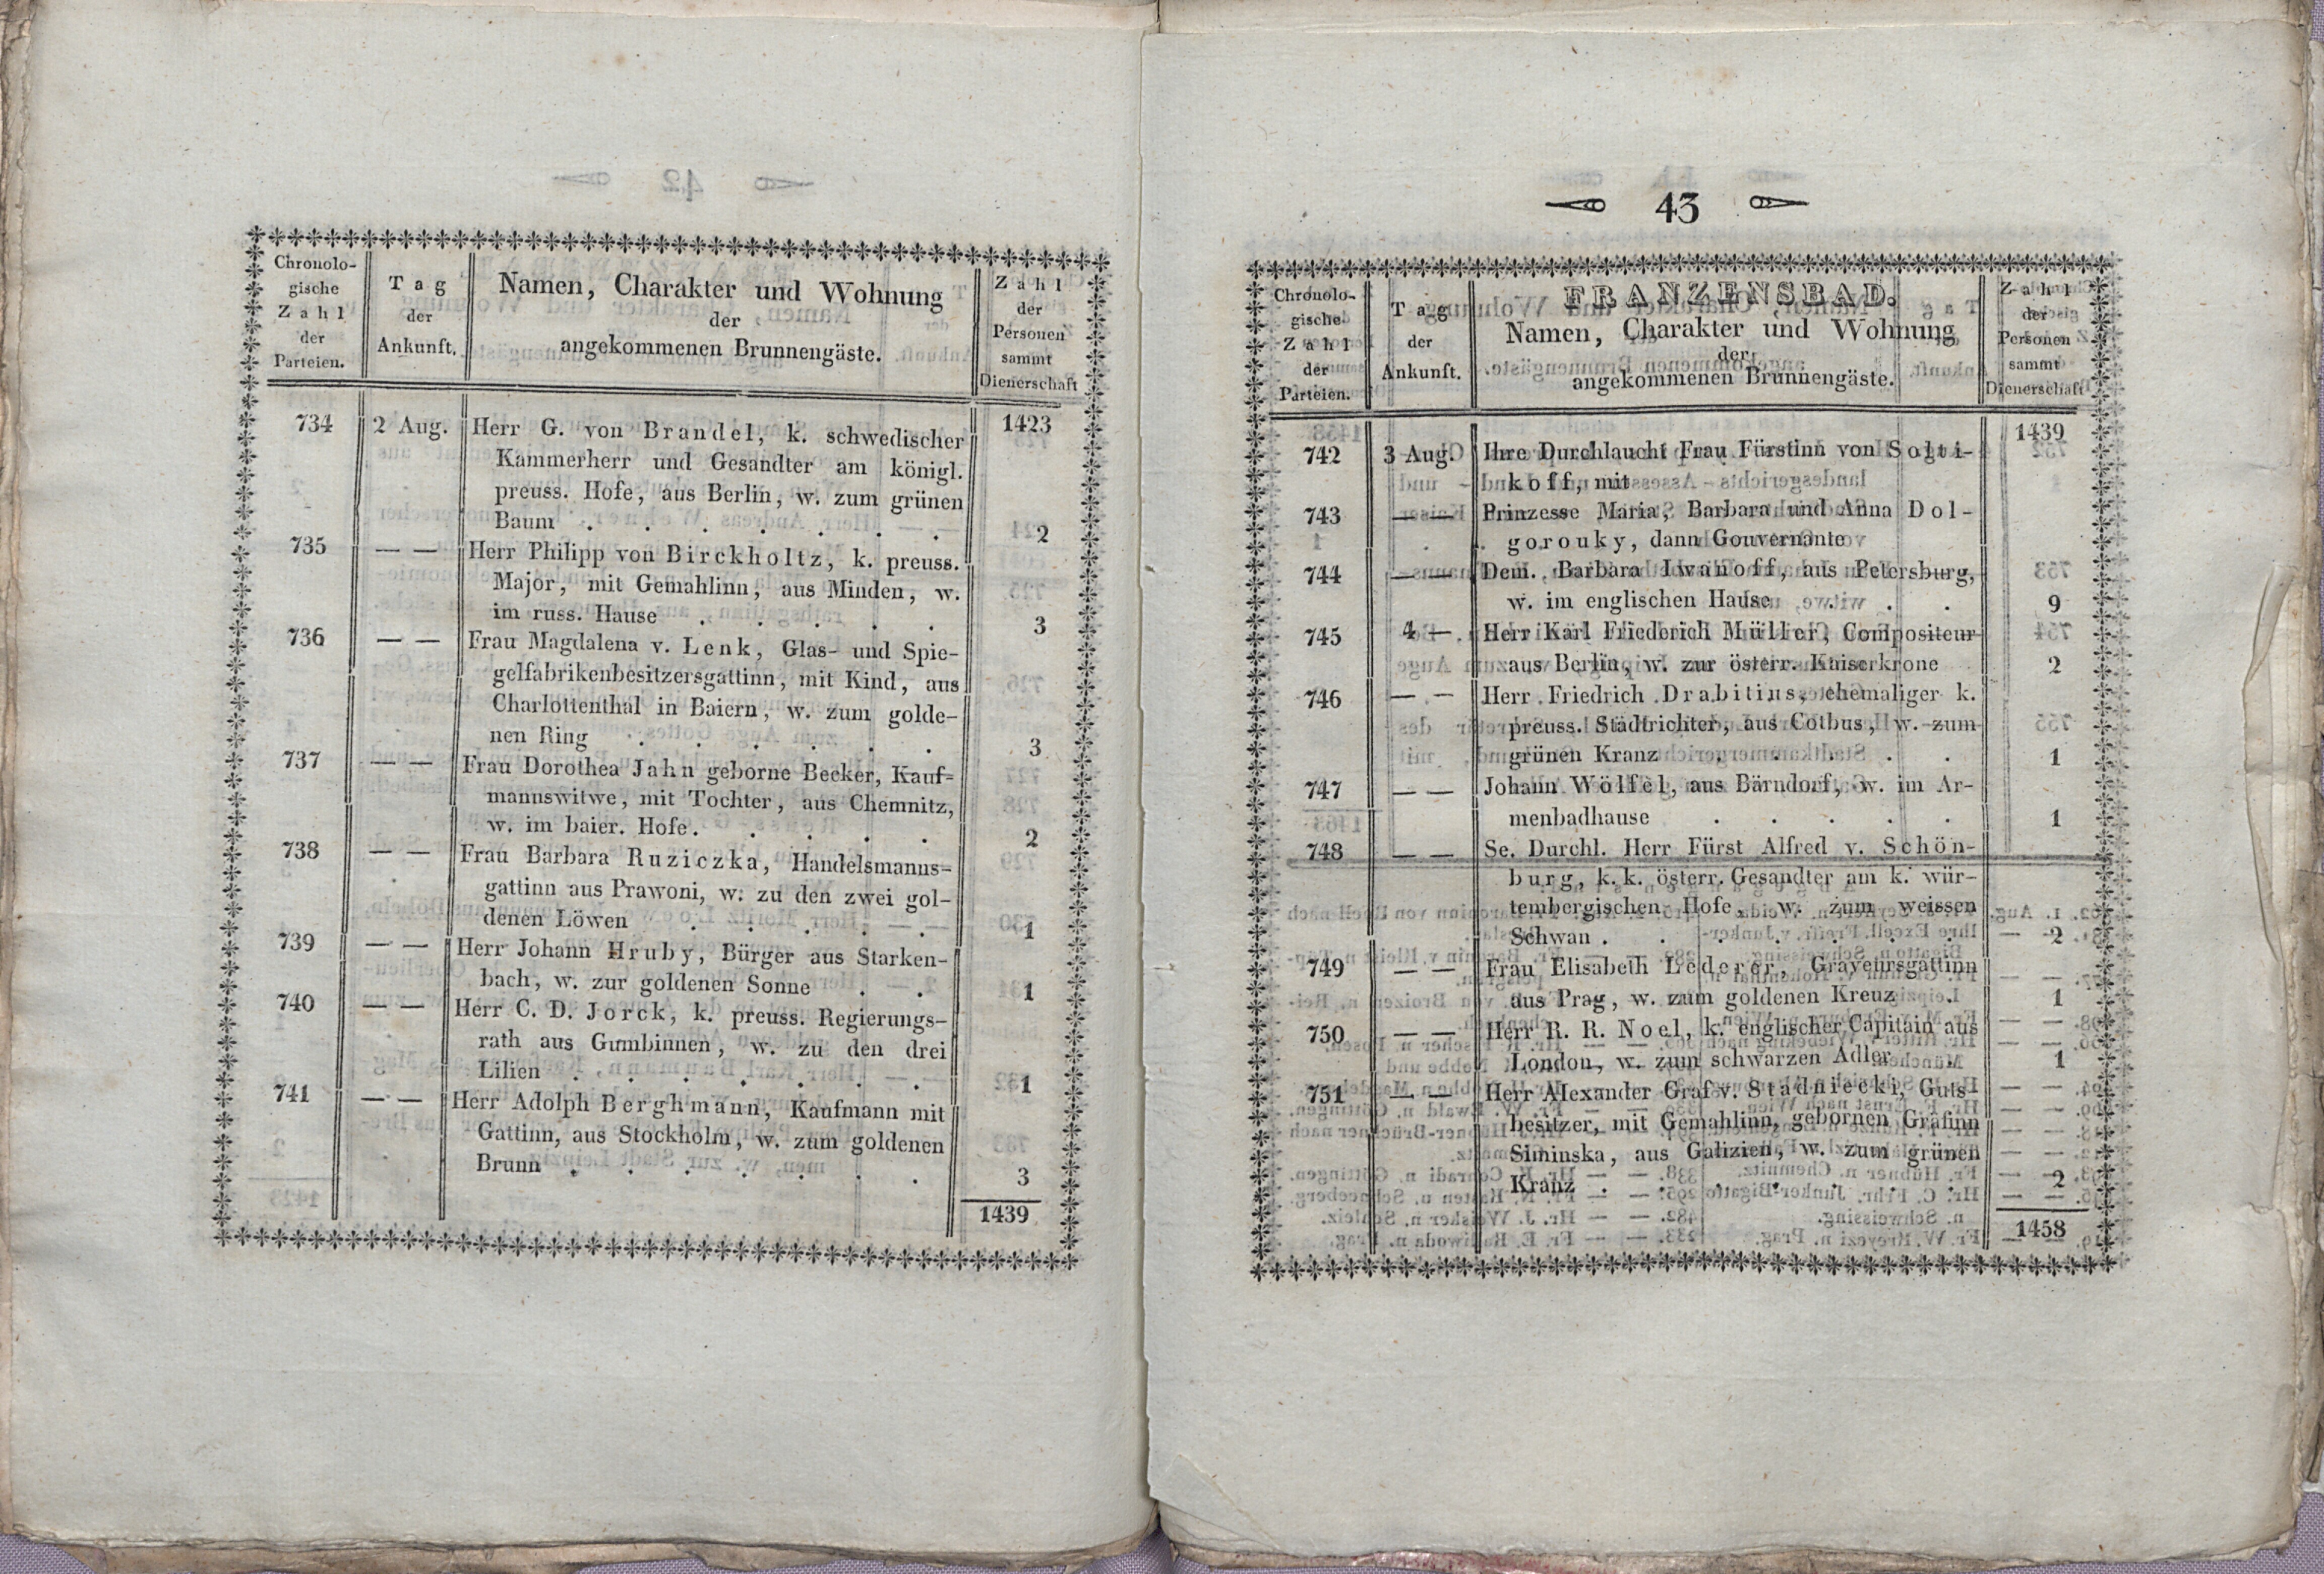 Chronolo-
gische
Zahl
der
Parteien.
Tag
der
Ankunft.
Namen, Charakter und Wohnung
der
angekommenen Brunnengäste.
Zahl
der
Personen
sammt
Dienerschaft
1423
734 2 Aug. Herr G. von Brandel, k. schwedischer
Kammerherr und Gesandter am königl.
preuss. Hofe, aus Berlin, w. zum grünen
Baum . . . . . . 2
735 — — Herr Philipp von Birckholtz, k. preuss.
Major, mit Gemahlinn, aus Minden, w.
im russ. Hause . . . . . 3
736 — — Frau Magdalena v. Lenk, Glas- und Spie-
gelfabrikenbesitzersgattinn, mit Kind, aus
Charlottenthal in Baiern, w. zum golde-
nen Ring . . . . . . 3
737 — — Frau Dorothea Jahn geborne Becker, Kauf-
mannswitwe, mit Tochter, aus Chemnitz,
w. im baier. Hofe. . . . . 2
738 — — Frau Barbara Ruziczka, Handelsmanns-
gattinn aus Prawoni, w. zu den zwei gol-
denen Löwen . . . . . 1
739 — — Herr Johann Hruby, Bürger aus Starken-
bach, w. zur goldenen Sonne . . 1
740 — — Herr C. D. Jorck, k. preuss. Regierungs-
rath aus Gumbinnen, w. zu den drei
Lilien . . . . . . . 1
741 — — Herr Adolph Berghmann, Kaufmann mit
Gattinn, aus Stockholm, w. zum goldenen
Brunn . . . . . . . 3
1439
43
Chronolo-
gische
Zahl
der
Parteien.
Tag
der
Ankunft.
FRANZENSBAD.
Namen, Charakter und Wohnung
der
angekommenen Brunnengäste.
Zahl
der
Personen
sammt
Dienerschaft
1439
742 3 Aug. Ihre Durchlaucht Frau Fürstinn von Solti-
koff, mit
743 — — Prinzesse Maria, Barbara und Anna Dol-
gorouky, dann Gouvernante
744 — — Dem. Barbara Iwanoff, aus Petersburg,
w. im englischen Hause . . . 9
745 4 — Herr Karl Friederich Müller, Compositeur
aus Berlin, w. zur österr. Kaiserkrone 2
746 — — Herr Friedrich Drabitius, ehemaliger k.
preuss. Stadtrichter, aus Cotbus, w. zum
grünen Kranz . . . . . 1
747 — — Johann Wölfel, aus Bärndorf, w. im Ar-
menbadhause . . . . . 1
748 — — Se. Durchl. Herr Fürst Alfred v. Schön-
burg, k. k. österr. Gesandter am k. wür-
tembergischen Hofe, w. zum weissen
Schwan . . . . . . . 2
749 — — Frau Elisabeth Lederer, Graveursgattinn
aus Prag, w. zum goldenen Kreuz . 1
750 — — Herr R. R. Noel, k. englischer Capitain aus
London, w. zum schwarzen Adler . 1
751 — — Herr Alexander Graf v. Stadniecki, Guts-
besitzer, mit Gemahlinn, gebornen Gräfinn
Siminska, aus Galizien, w. zum grünen
Kranz . . . . . . . 2
1458